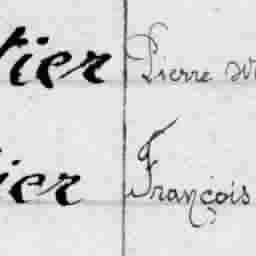 tier Pierre
ier François